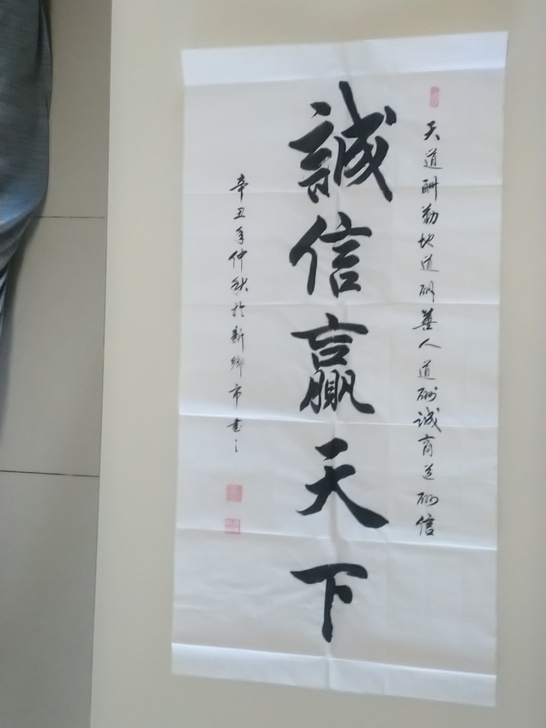 天道酬勤地道酬善人道酬诚商道酬信
誠信贏天下
辛丑年仲秋於新鄉市書之